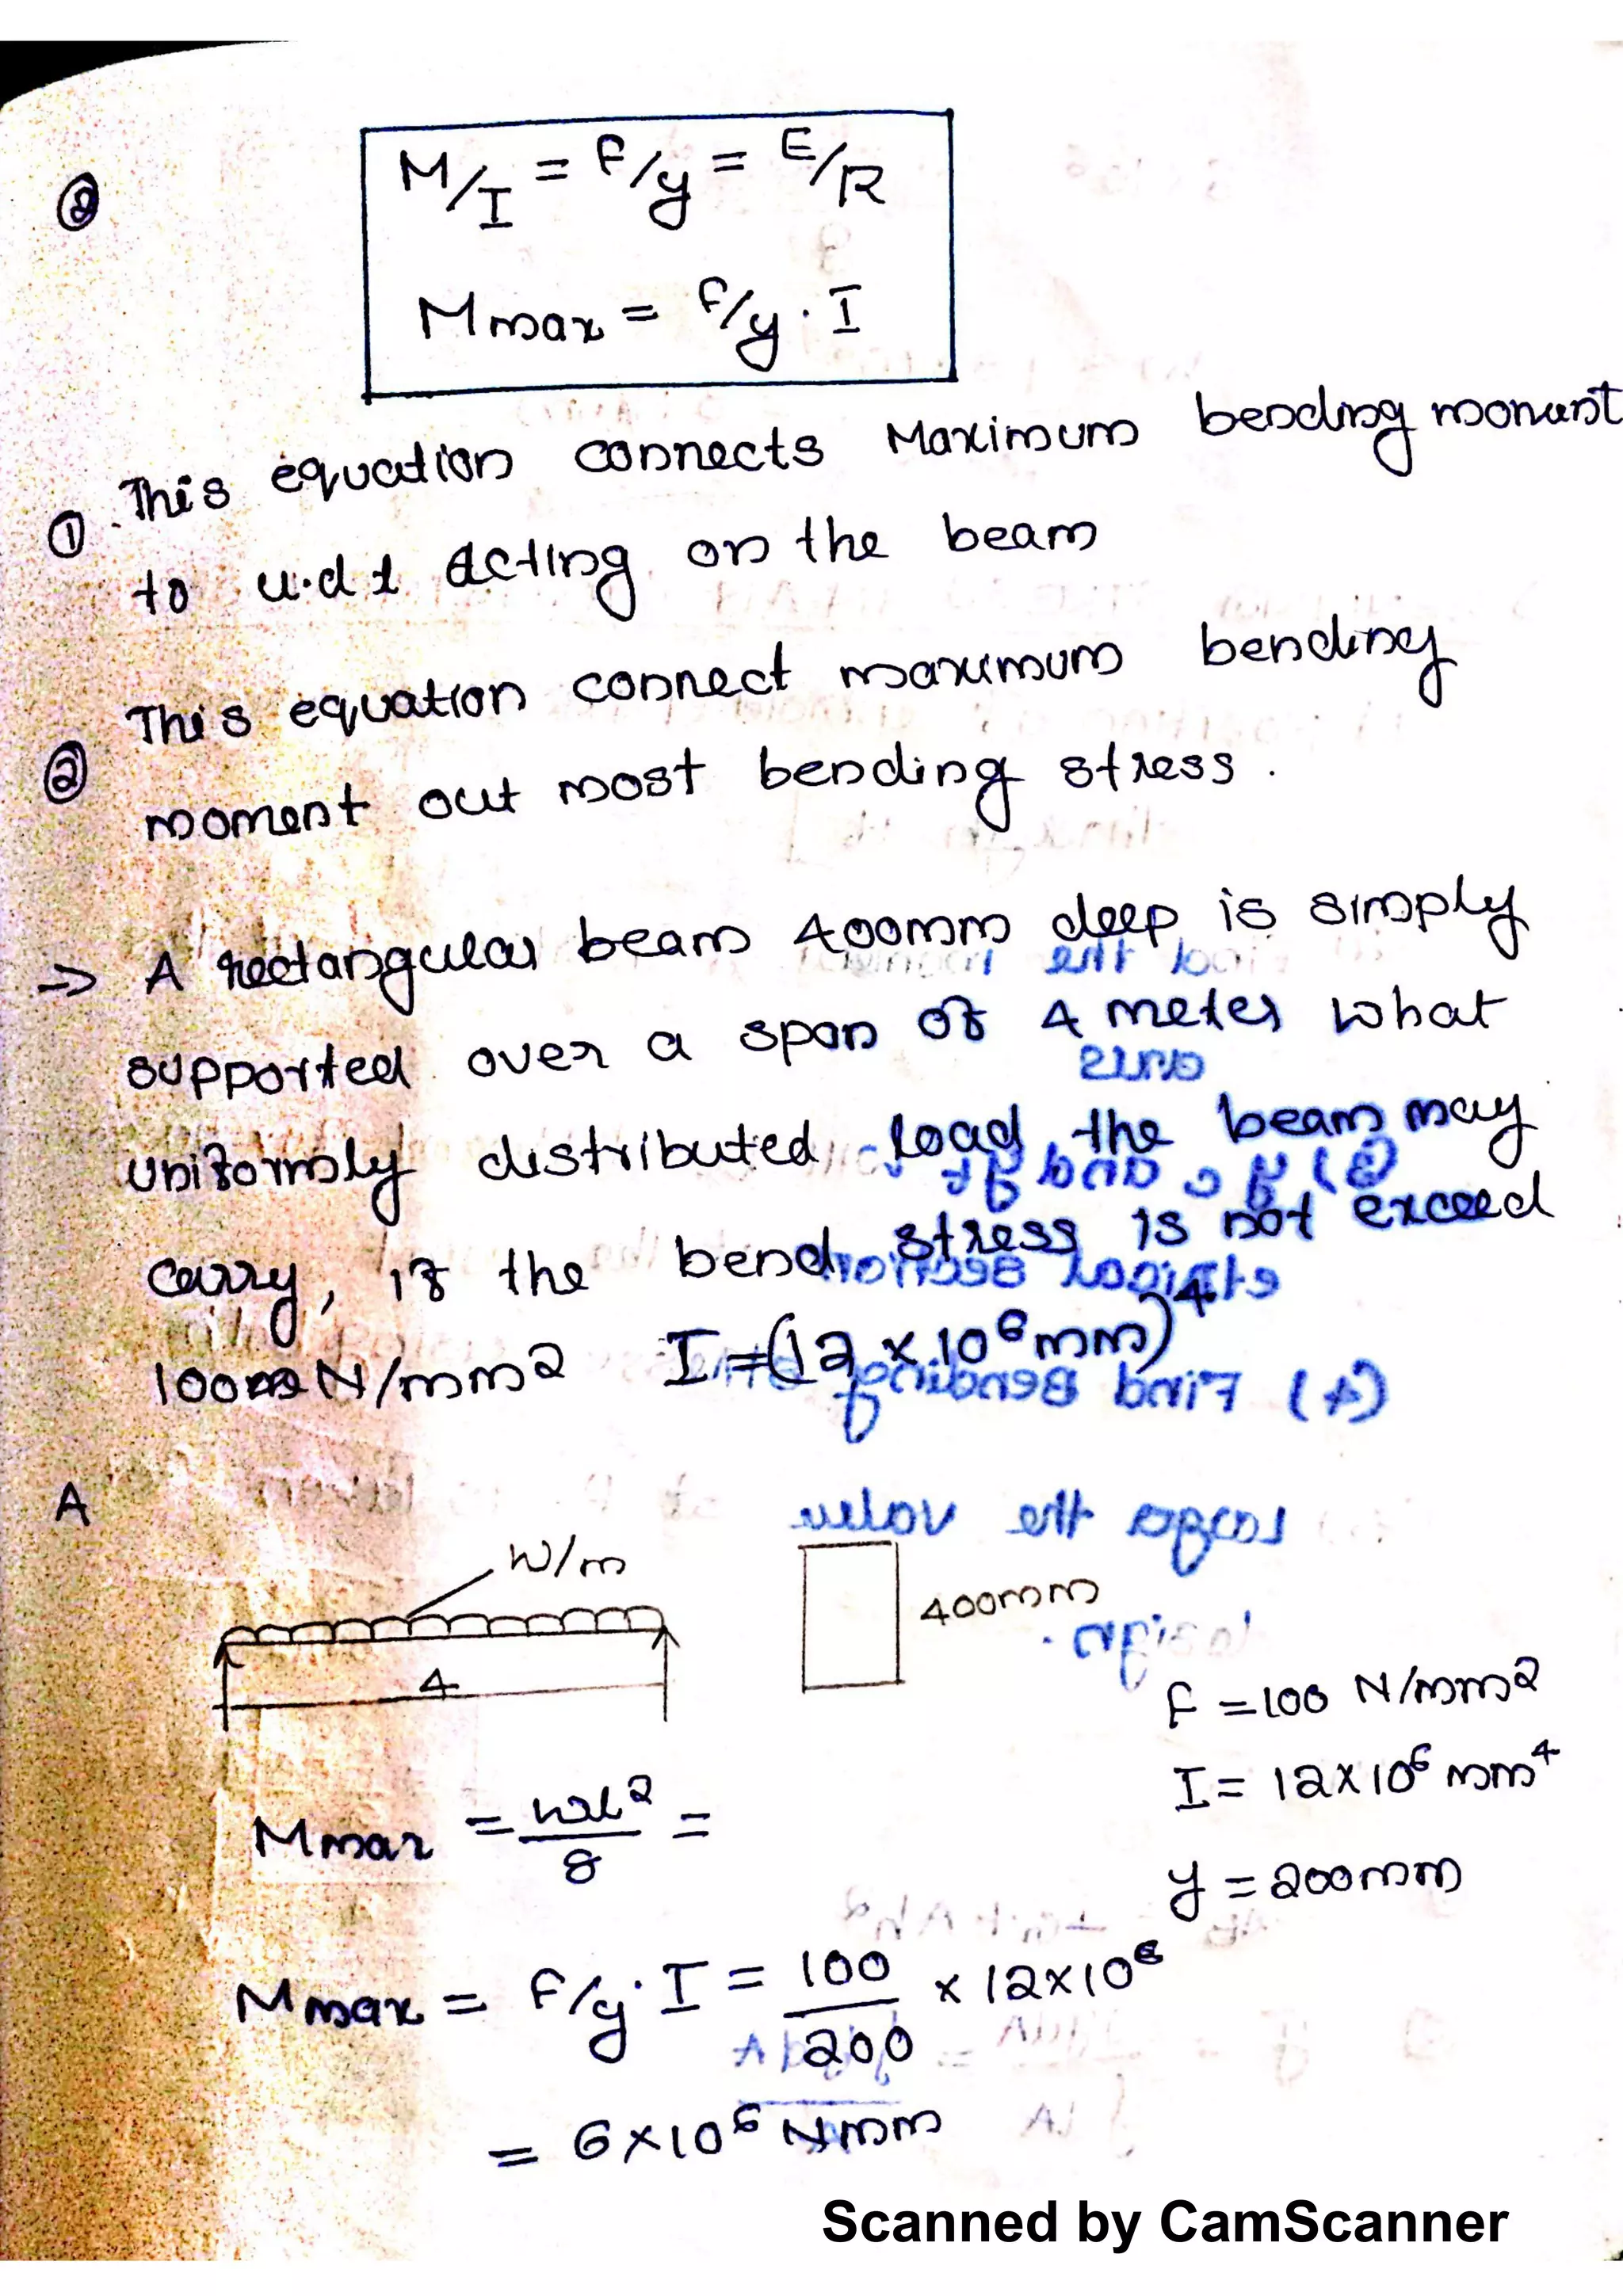 ②
M/I = F/y = E/R
Mmax = F/y · I
① This equation connects Maximum bending monunt
to u.d.l acting on the beam
② This equation connect maximum bending
moment out most bending stress.
=> A rectangular beam 400mm deep is simply
supported over a span of 4 meter what
uniformly distributed load the beam may
carry, if the bend stress is not exceed
100 N/mm2 I = (12 × 10⁶ mm)⁴
A
W/m
400mm
4
F = 100 N/mm²
I = 12×10⁶ mm⁴
Mmax = wl²/8 =
y = 200mm
Mmax = F/y · I = 100/200 × 12×10⁶
= 6×10⁶ Nmm
Scanned by CamScanner